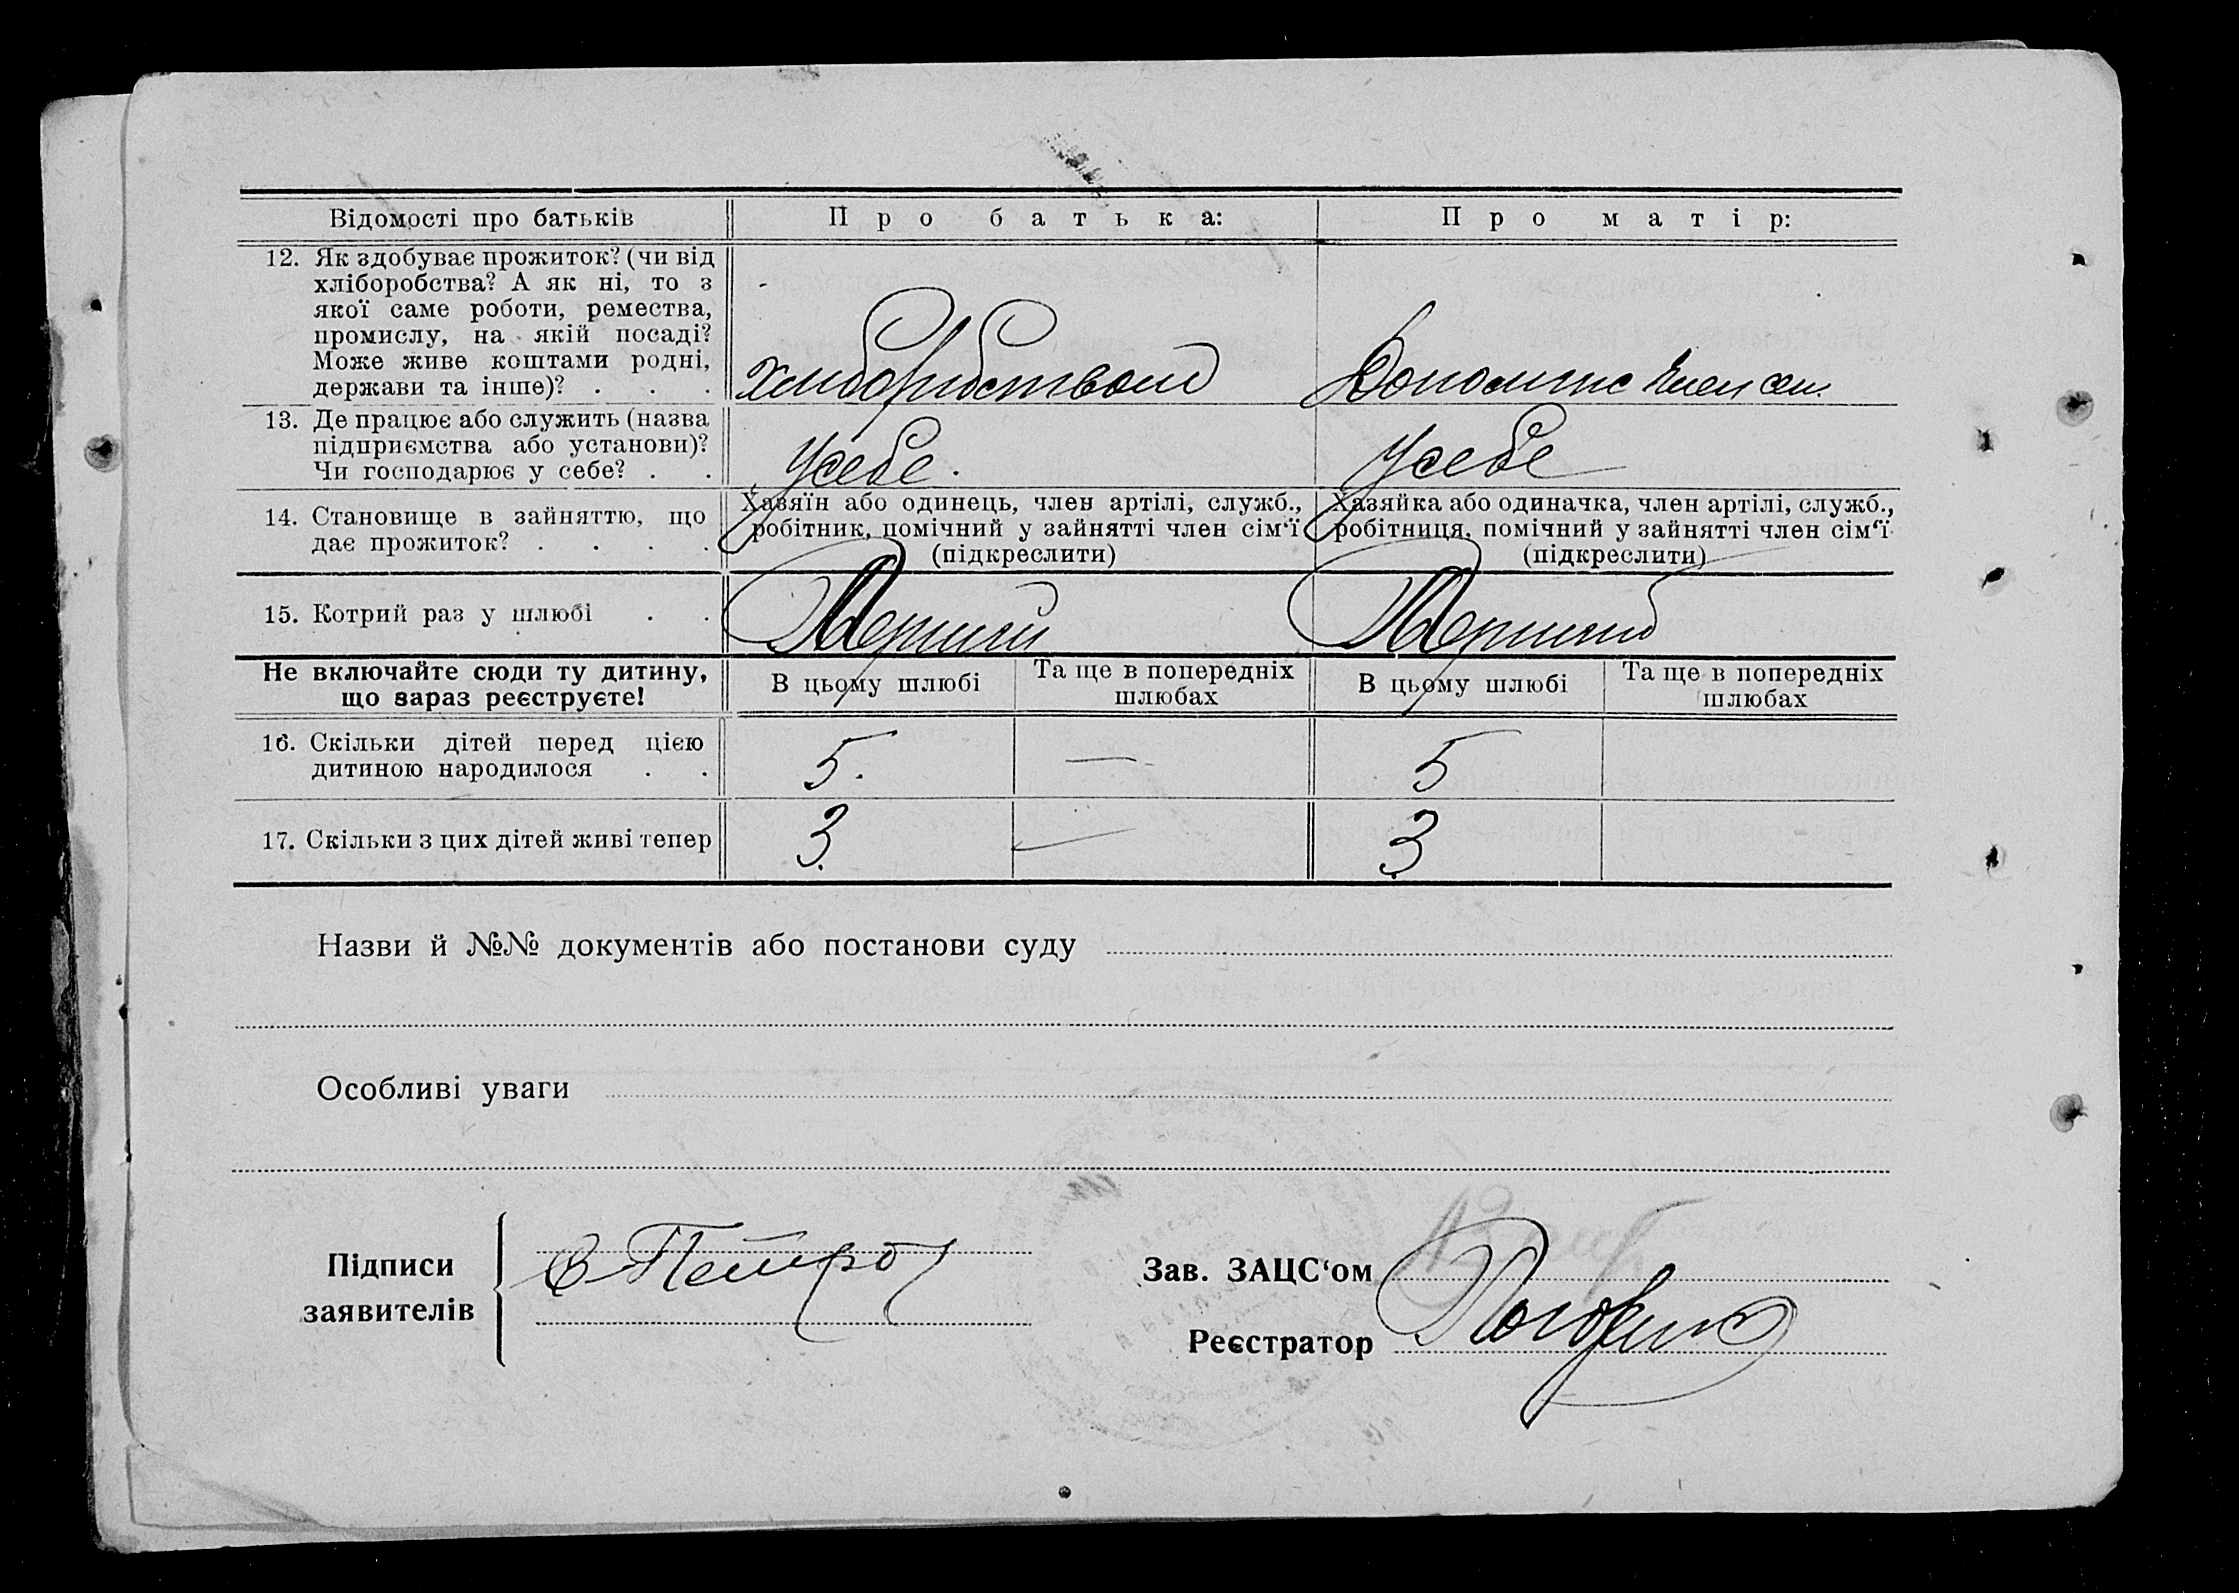 Відомості про батьків
Про батька:
Про матір:
12. Як здобуває прожиток? (чи від
хліборобства? А як ні, то з
якої саме роботи, ремества,
промислу, на якій посаді?
Може живе коштами родні,
держави та інше)? . . .
Хліборобством
Допомогає член сем.
13. Де працює або служить (назва
підприємства або установи)?
Чи господарює у себе? . .
У себе.
У себе
14. Становище в зайняттю, що
дає прожиток? . . . .
Хазяїн або одинець, член артілі, служб.,
робітник, помічний у зайнятті член сім'ї
(підкреслити)
Хазяйка або одиначка, член артілі, служб.,
робітниця, помічний у зайнятті член сім'ї
(підкреслити)
15. Котрий раз у шлюбі . .
Перший
Перший
Не включайте сюди ту дитину,
що зараз реєструєте!
В цьому шлюбі
Та ще в попередніх
шлюбах
В цьому шлюбі
Та ще в попередніх
шлюбах
16. Скільки дітей перед цією
дитиною народилося . .
5. —
5
17. Скільки з цих дітей живі тепер
3. —
3
Назви й №№ документів або постанови суду
Особливі уваги
Підписи
заявителів
Зав. ЗАЦС'ом
Реєстратор